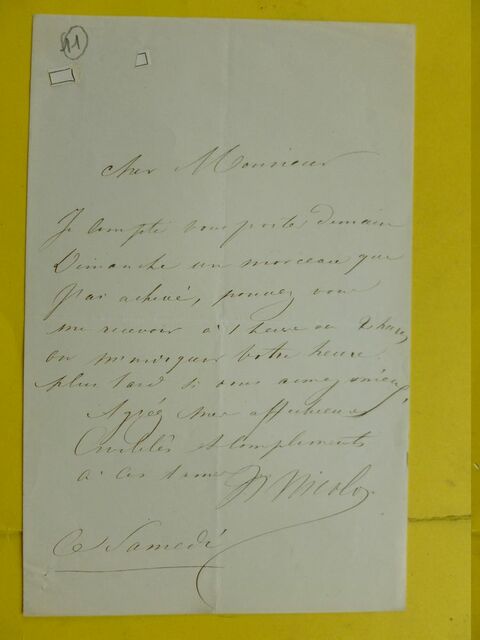 11
Cher Monsieur
Je compte vous porter demain
Dimanche un morceau que
j'ai achevé, pouvez vous
me recevoir à 1 heure ou 2 heures
ou m'indiquer votre heure
plus tard si vous aimez mieux
Agréez mes affectueux
et compliments
à
Nicolo
Ce Samedi